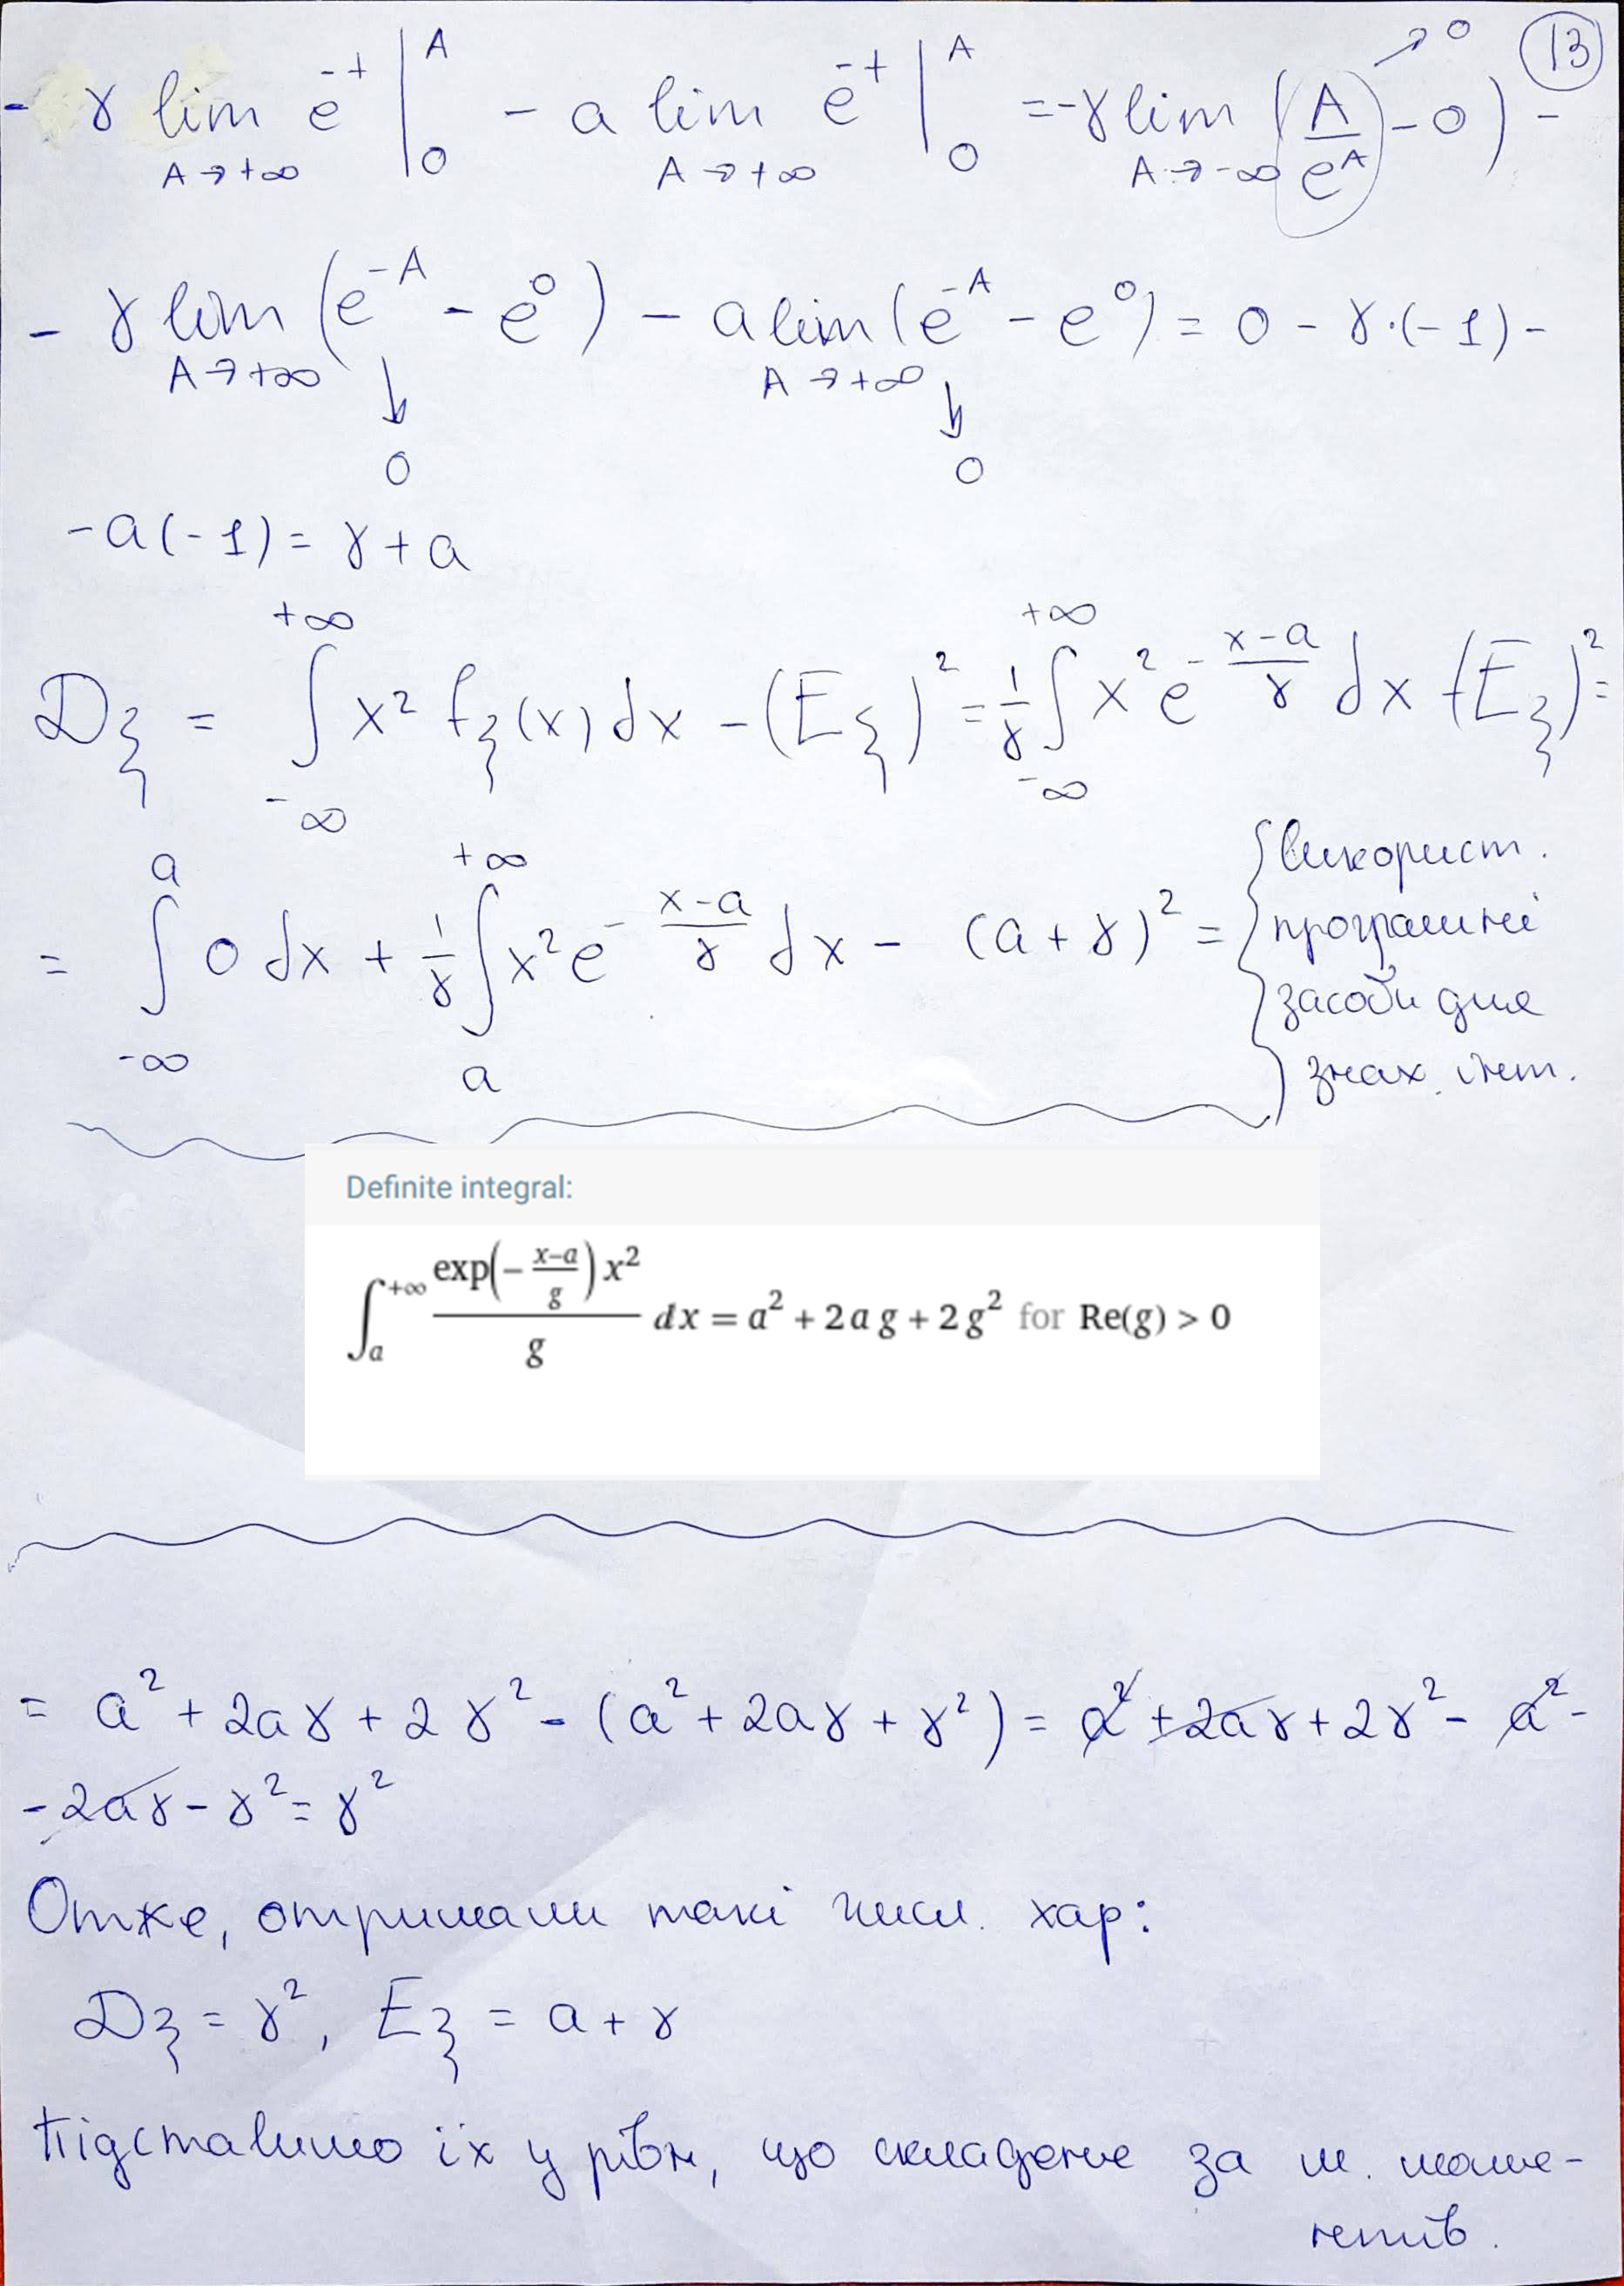 13
- γ lim_{A→+∞} e^{-t} |_0^A - a lim_{A→+∞} e^{-t} |_0^A = -γ lim_{A→-∞} (A/e^A - 0) - → 0
- γ lim_{A→+∞} (e^{-A} - e^0) - a lim_{A→+∞} (e^{-A} - e^0) = 0 - γ·(-1) -
↓ 0 ↓ 0
- a(-1) = γ + a
Dξ = ∫_{-∞}^{+∞} x² f_ξ(x) dx - (Eξ)² = 1/γ ∫_{-∞}^{+∞} x² e^{-(x-a)/γ} dx - (Eξ)² =
= ∫_{-∞}^{a} 0 dx + 1/γ ∫_a^{+∞} x² e^{-(x-a)/γ} dx - (a + γ)² = {використ.
програмні
засоби для
знах. інт.
Definite integral:
∫_a^{+∞} exp(-(x-a)/g) x² / g dx = a² + 2 a g + 2 g² for Re(g) > 0
= a² + 2aγ + 2γ² - (a² + 2aγ + γ²) = a² + 2aγ + 2γ² - a² -
- 2aγ - γ² = γ²
Отже, отримали такі числ. хар:
Dξ = γ², Eξ = a + γ
Підставимо їх у рівн, що складене за м. моме-
нтів.